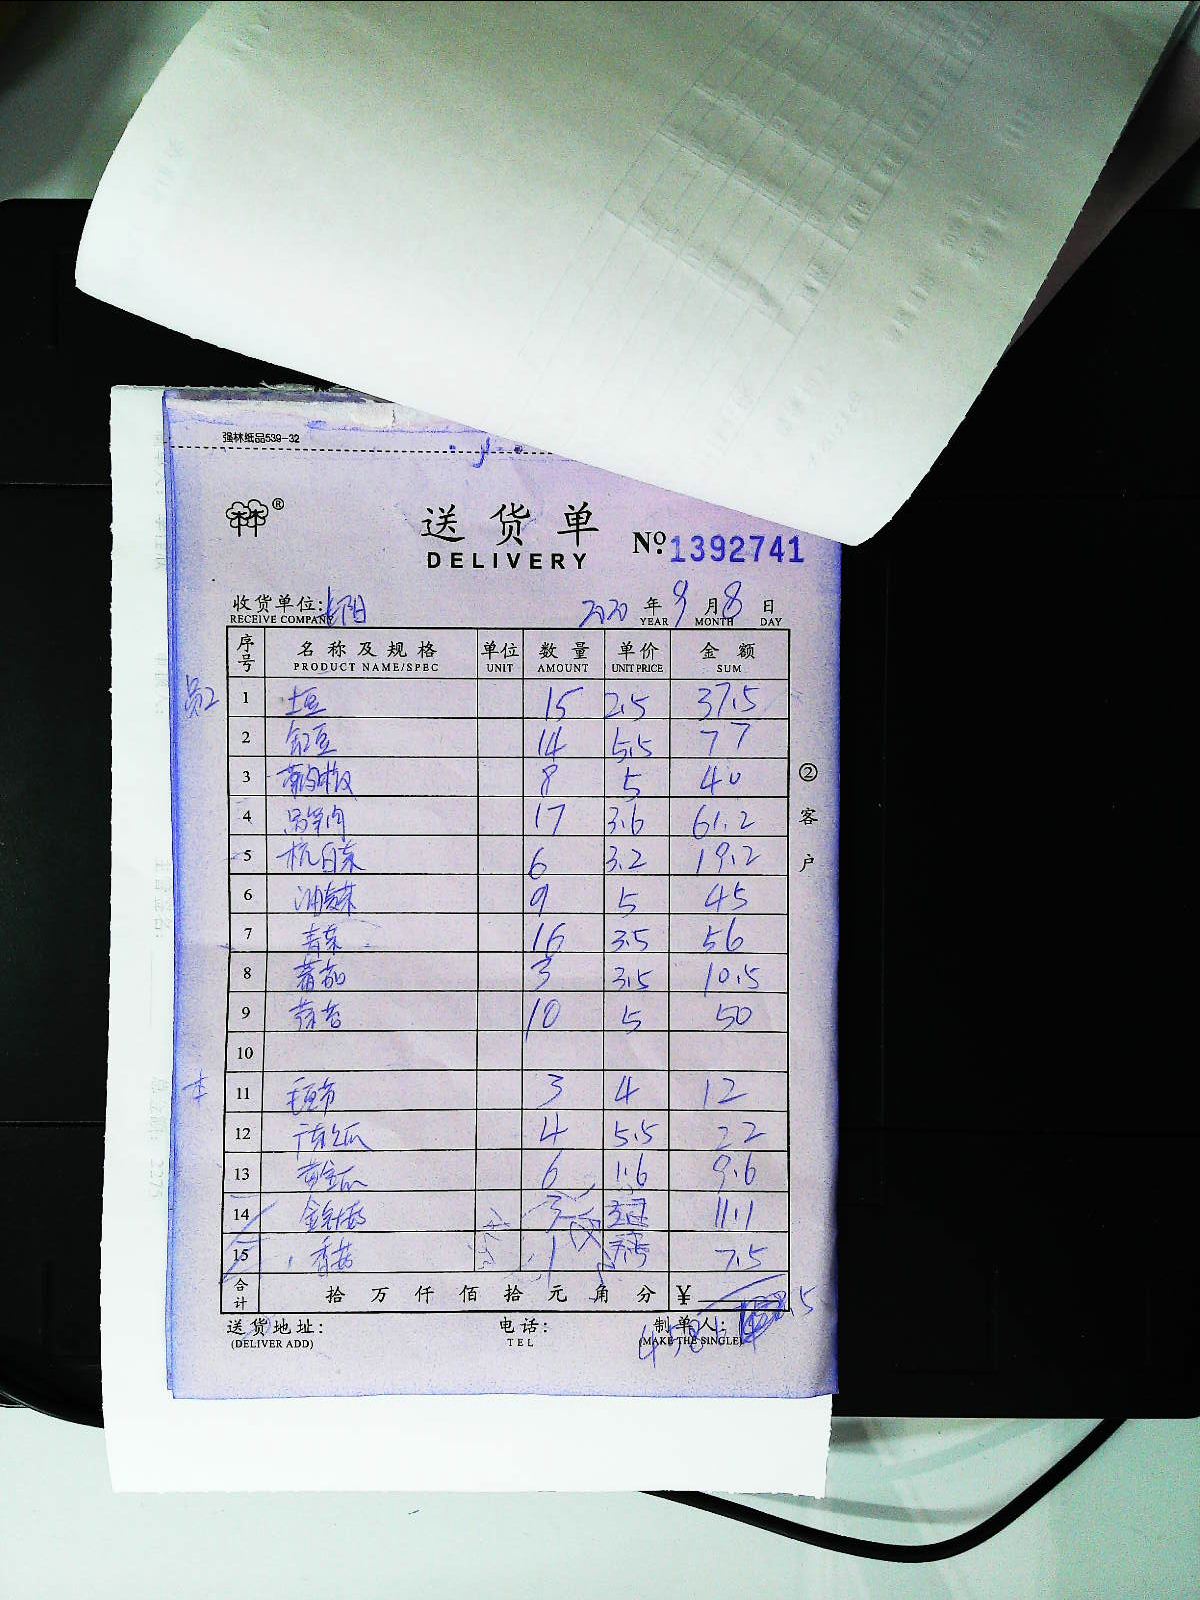 强林纸品539-32
林®
送货单
DELIVERY
Nº.1392741
收货单位:
RECEIVE COMPANY
2020年9月8日
YEAR MONTH DAY
序号 名称及规格 单位 数量 单价 金额
PRODUCT NAME/SPEC UNIT AMOUNT UNIT PRICE SUM
1 土豆 15 2.5 37.5
2 豆 14 5.5 77
3 8 5 40
4 17 3.6 61.2
5 杭白菜 6 3.2 19.2
6 油麦菜 9 5 45
7 青菜 16 3.5 56
8 蕃茄 3 3.5 10.5
9 蒜苔 10 5 50
10
本 11 毛豆节 3 4 12
12 瓜 4 5.5 22
13 黄金瓜 6 1.6 9.6
14 金针菇 3 11.1
15 香菇 1 7.5 7.5
合计 拾 万 仟 佰 拾 元 角 分 ¥
送货地址: 电话: 制单人:
(DELIVER ADD) TEL (MAKE THE SINGLE)
②客户